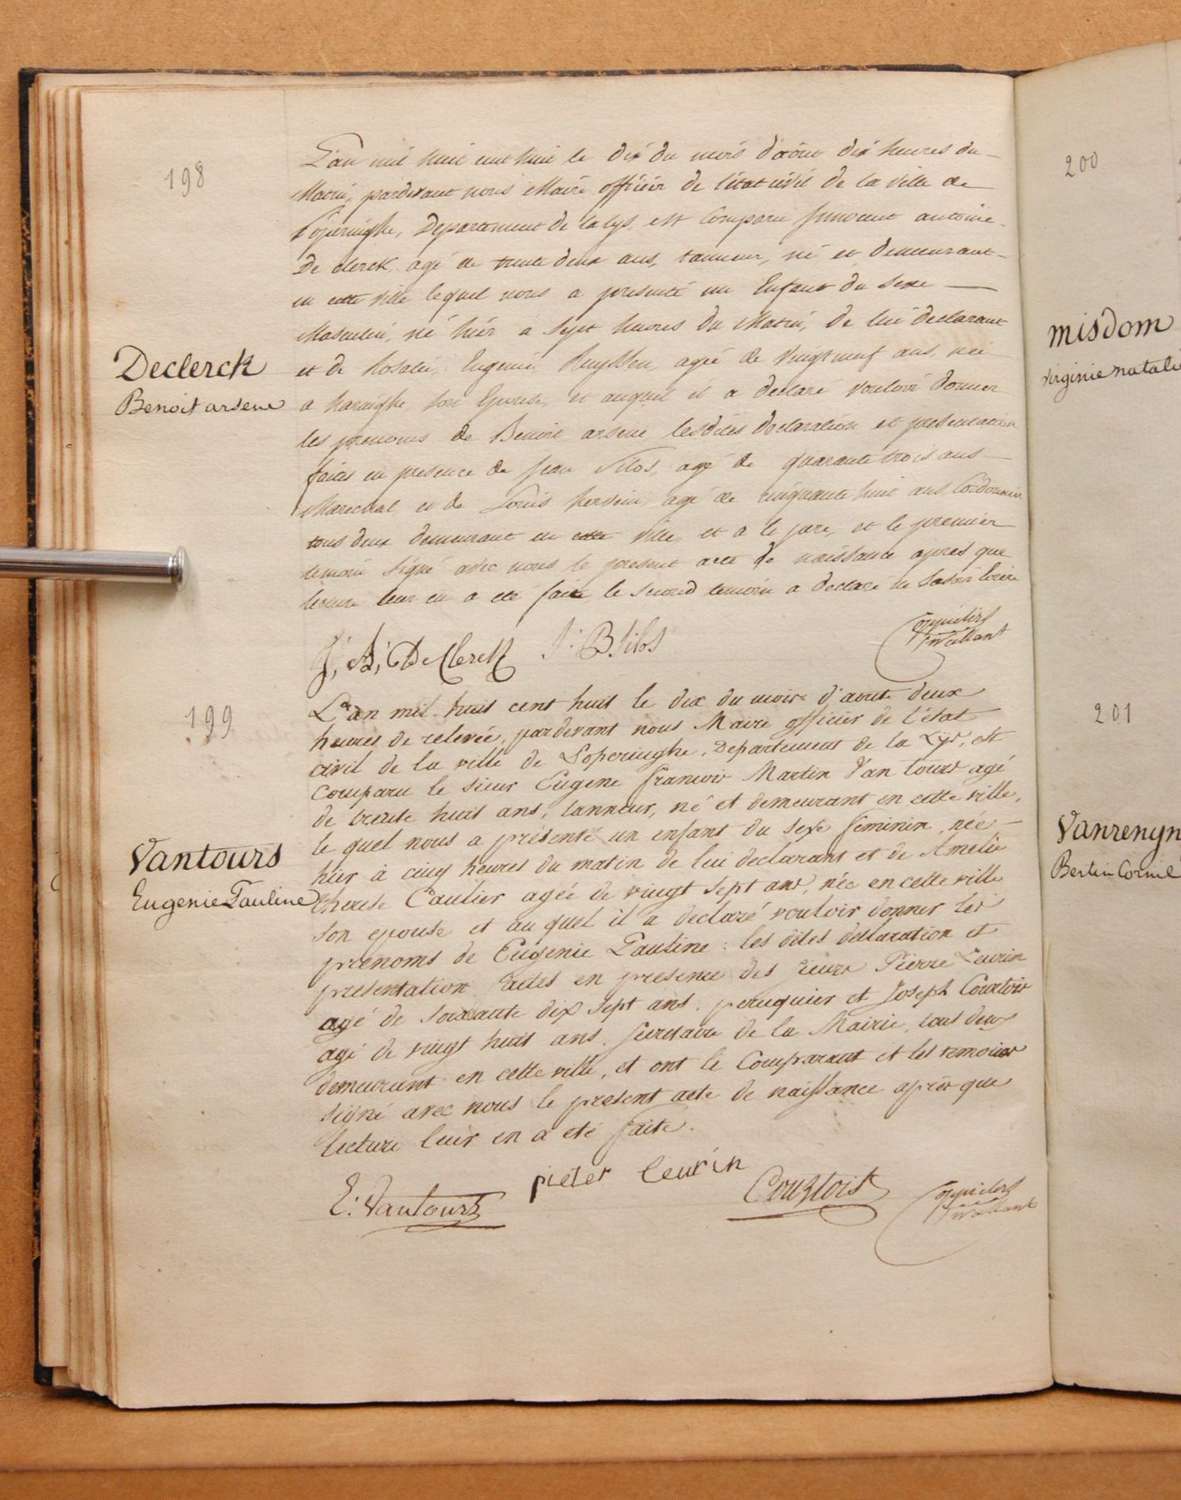 198
L'an mil huit cent huit le dix du mois d'aôut dix heures du
Matin, pardevant nous Maire officier de l'état civil de la ville de
Poperinghe, Departement de la Lys, est Comparu Innocent antoine
De clerck agé de trente deux ans, tanneur, né et demeurant
en cette ville lequel nous a presenté un Enfant du sexe
Masculin, né hier a sept heures du Matin, de lui declarant
et de Rosalie Eugenie Ruyssen, agée de vingt neuf ans, née
a son Epouse, et auquel il a declaré vouloir donner
les prenoms de Benoit arsene lesdites declaration et presentation
faites en presence de Jean Silos, agé de quarante trois ans
Marechal, et de Louis agé de cinquante huit ans, Cordonnier
tous deux demeurant en cette ville, et a le pere, et le premier
temoin signé avec nous le present acte de naissance apres que
lecture leur en a eté faite le second temoin a declaré ne savoir Ecrire
Declerck
Benoit arsene
J. A. De Clerck J. B Silos
199
L'an mil huit cent huit le dix du mois d'aout deux
heures de relevée, pardevant nous Maire officier de l'état
civil de la ville de Poperinghe, Departement de la Lys, est
comparu le sieur Eugene francois Martin Van tours agé
de trente huit ans, tanneur, né et demeurant en cette ville,
le quel nous a présenté un enfant du sexe feminin, née
hier à cinq heures du matin de lui declarant et de Amelie
therese Caulier agée de vingt sept ans, née en cette ville
son epouse et au quel il a declaré vouloir donner les
prenoms de Eugenie Pauline : les dites declaration et
presentation faites en presence des sieurs Pierre Leurin
agé de soixante dix sept ans, peruquier et Joseph Courtois
agé de vingt huit ans, secretaire de la Mairie, tous deux
demeurant en cette ville, et ont le Comparant et les temoins
signé avec nous le present acte de naissance après que
lecture leur en a eté faite.
Vantours
Eugenie Pauline
E. Vantours pieter Leurin Courtois
200
misdom
virginie natali
201
Vanrenyn
Bertin Cornil